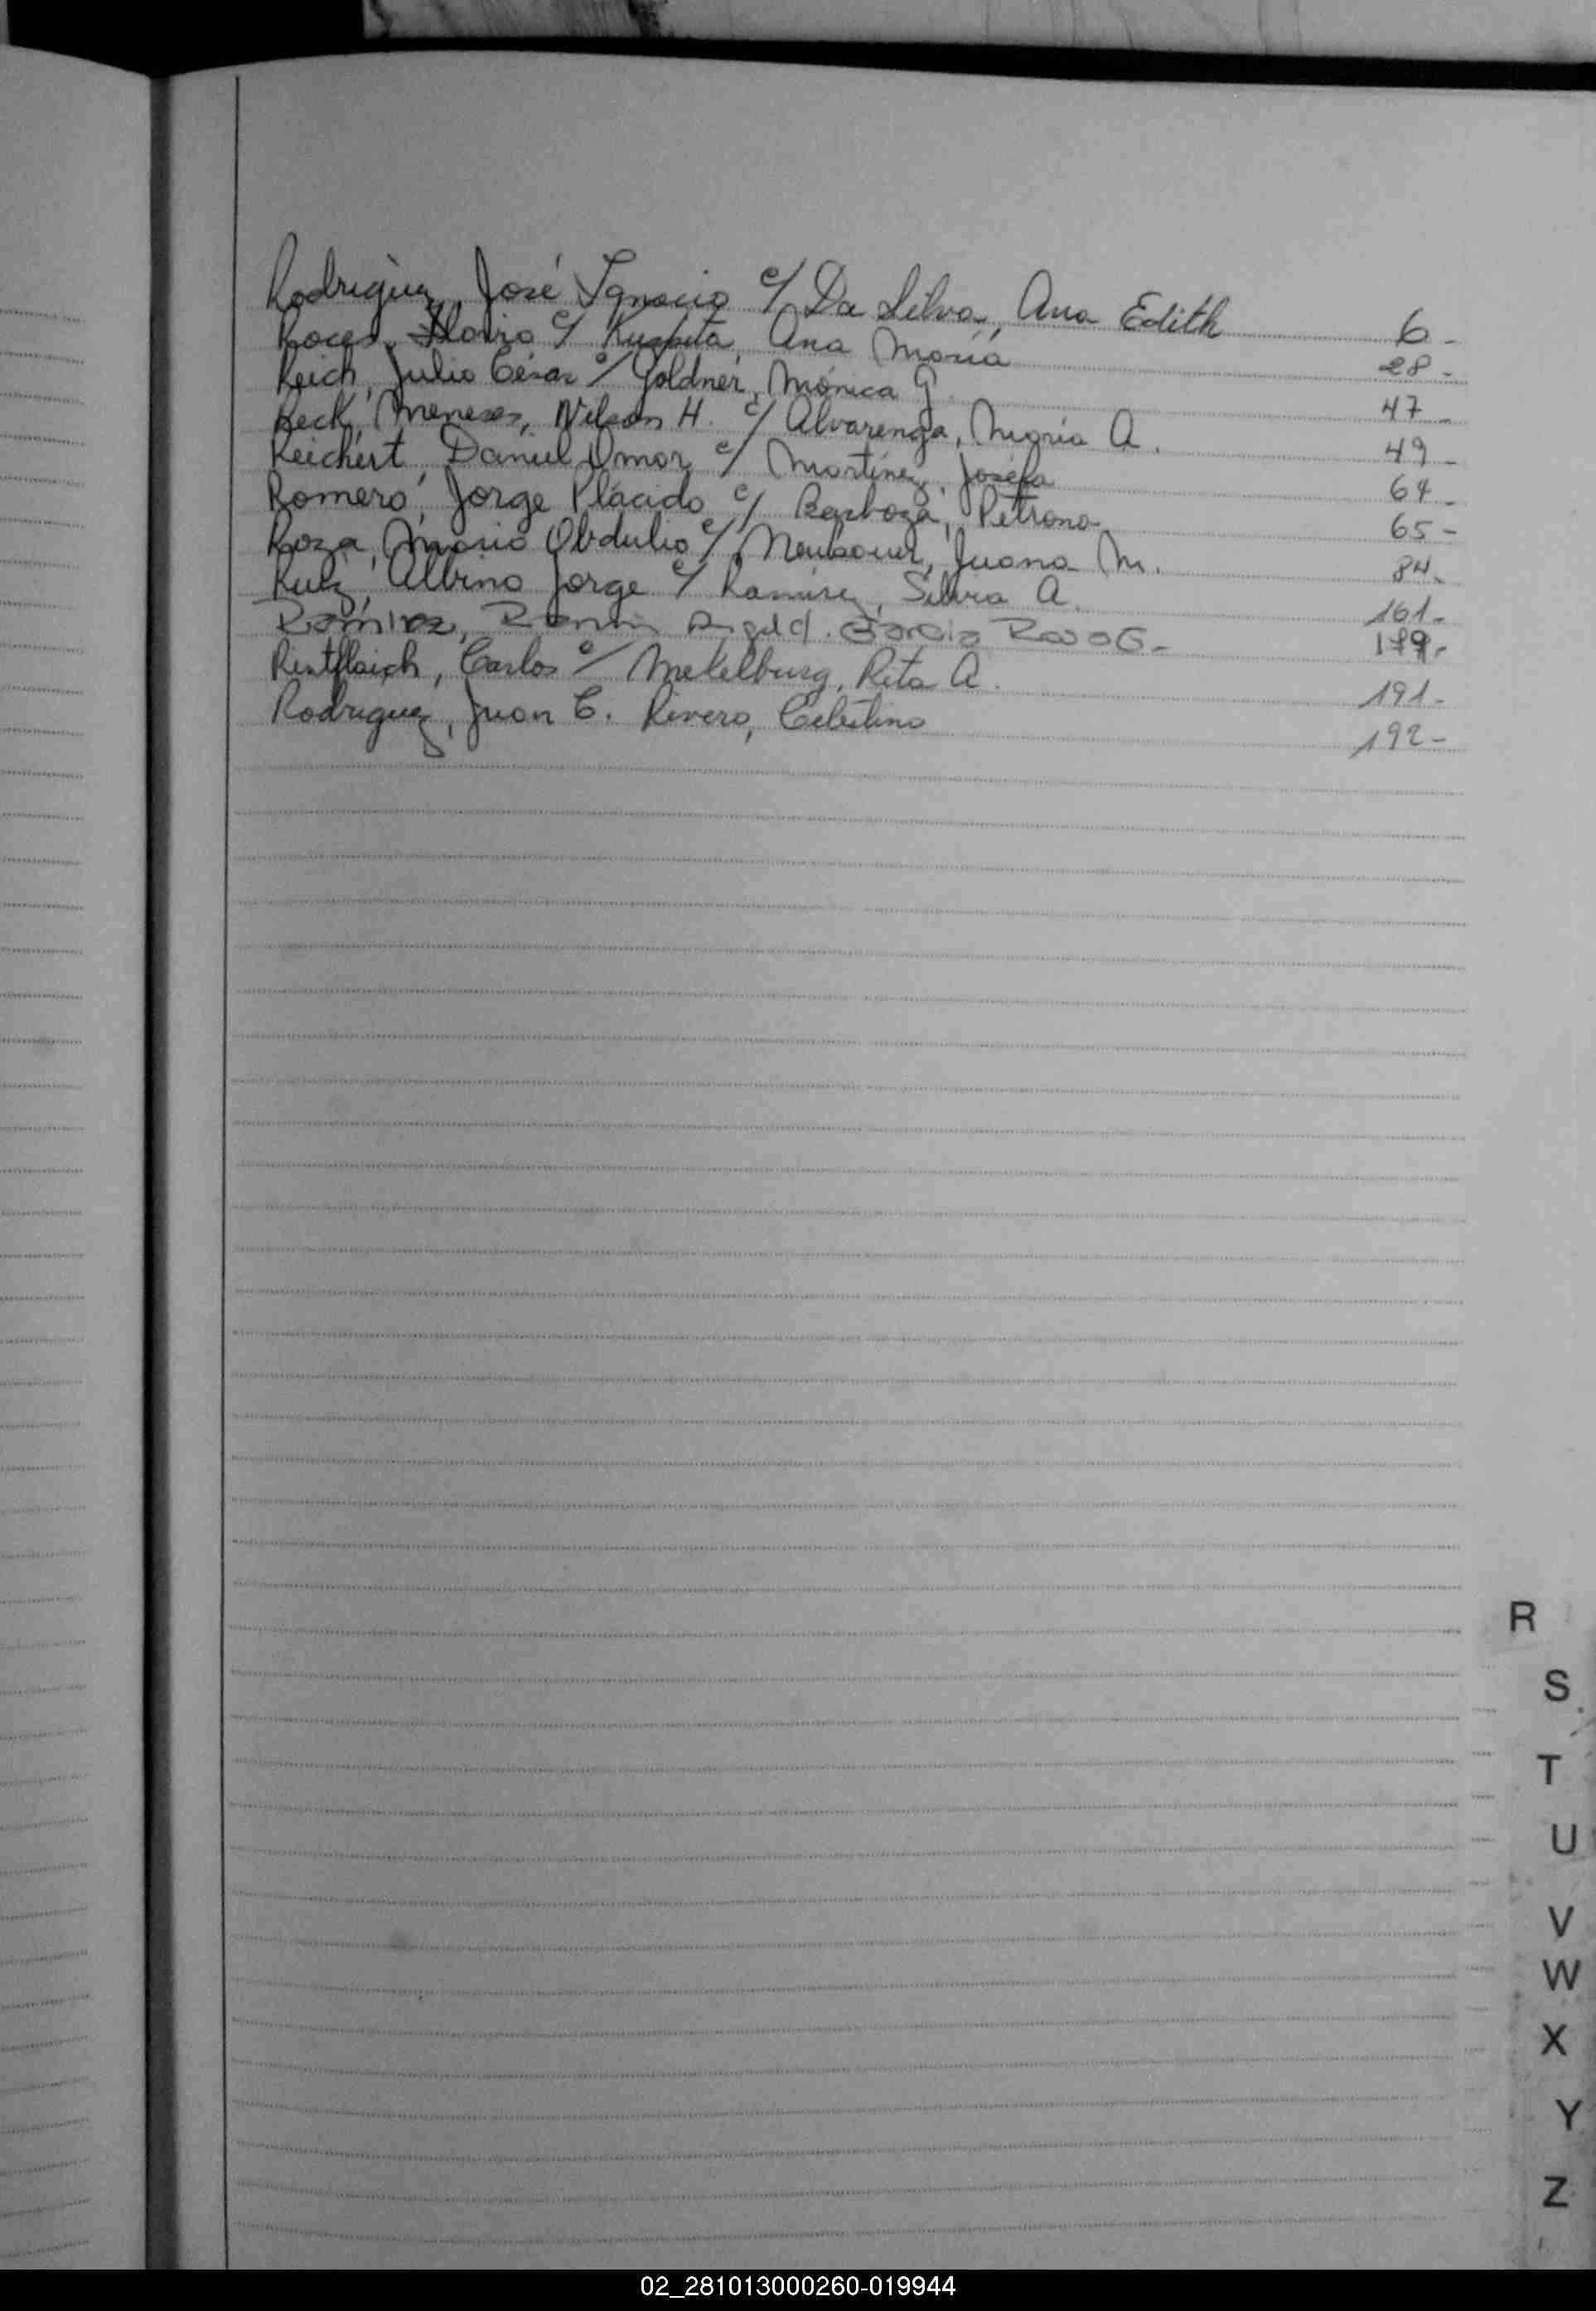 Rodriguez, José Ignacio c/ Da Silva, Ana Edith 6-
Roces, c/ Ana María 28-
Reich, Julio César c/ Goldner, Mónica G. 47-
Reck, Meneses, Nelson H. c/ Alvarenga, María A. 49-
Reichert, Daniel Omar c/ Martínez, Josefa 64-
Romero, Jorge Plácido c/ Barboza, Petrona 65-
Roza, Mario Obdulio c/ Juana M. 84-
Ruiz, Albino Jorge c/ Ramirez, Silvia A. 161-
Ramirez, Ramón c/ García Rosa G.- 179-
Rintflaich, Carlos c/ Mekelburg, Rita A. 191-
Rodriguez, Juan C. Rivero, Celestina 192-
R
S
T
U
V
W
X
Y
Z
02_281013000260-019944